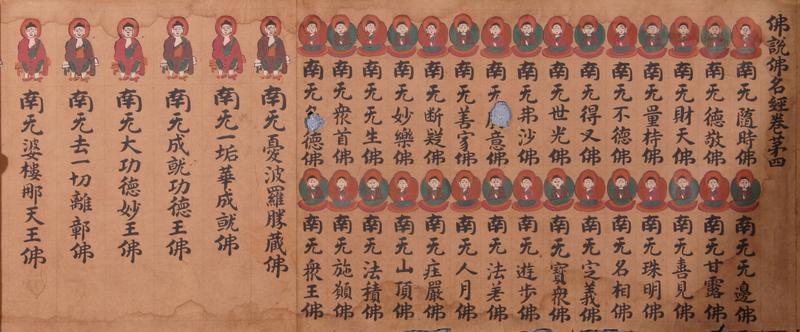 佛說佛名經卷第四
南无隨時佛
南无德敬佛
南无財天佛
南无量持佛
南无不德佛
南无得叉佛
南无世光佛
南无弗沙佛
南无意佛
南无善家佛
南无断疑佛
南无妙樂佛
南无无生佛
南无衆首佛
南无德佛
南无无邊佛
南无甘露佛
南无喜見佛
南无珠明佛
南无名相佛
南无定義佛
南无寶衆佛
南无遊步佛
南无法差佛
南无人月佛
南无疰嚴佛
南无山頂佛
南无法積佛
南无施願佛
南无衆王佛
南无憂波羅勝藏佛
南无一垢華成就佛
南无成就功德王佛
南无大功德妙王佛
南无去一切離鄣佛
南无婆樓那天王佛